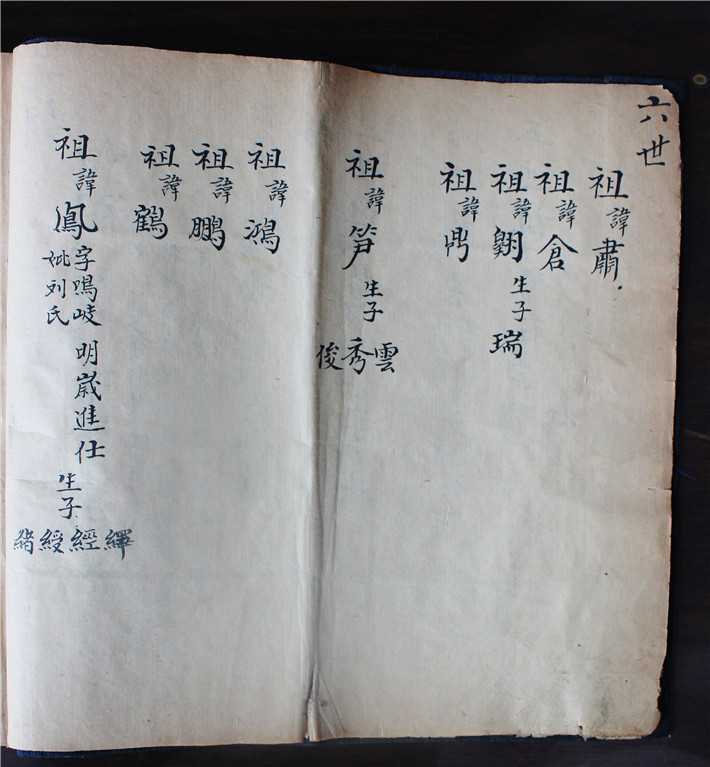 六世
祖諱肅
祖諱倉
祖諱翱生子瑞
祖諱
祖諱笋生子雲秀俊
祖諱鴻
祖諱鵬
祖諱鶴
祖諱鳳字鳴岐妣刘氏明歲進仕生子繹經綬緒